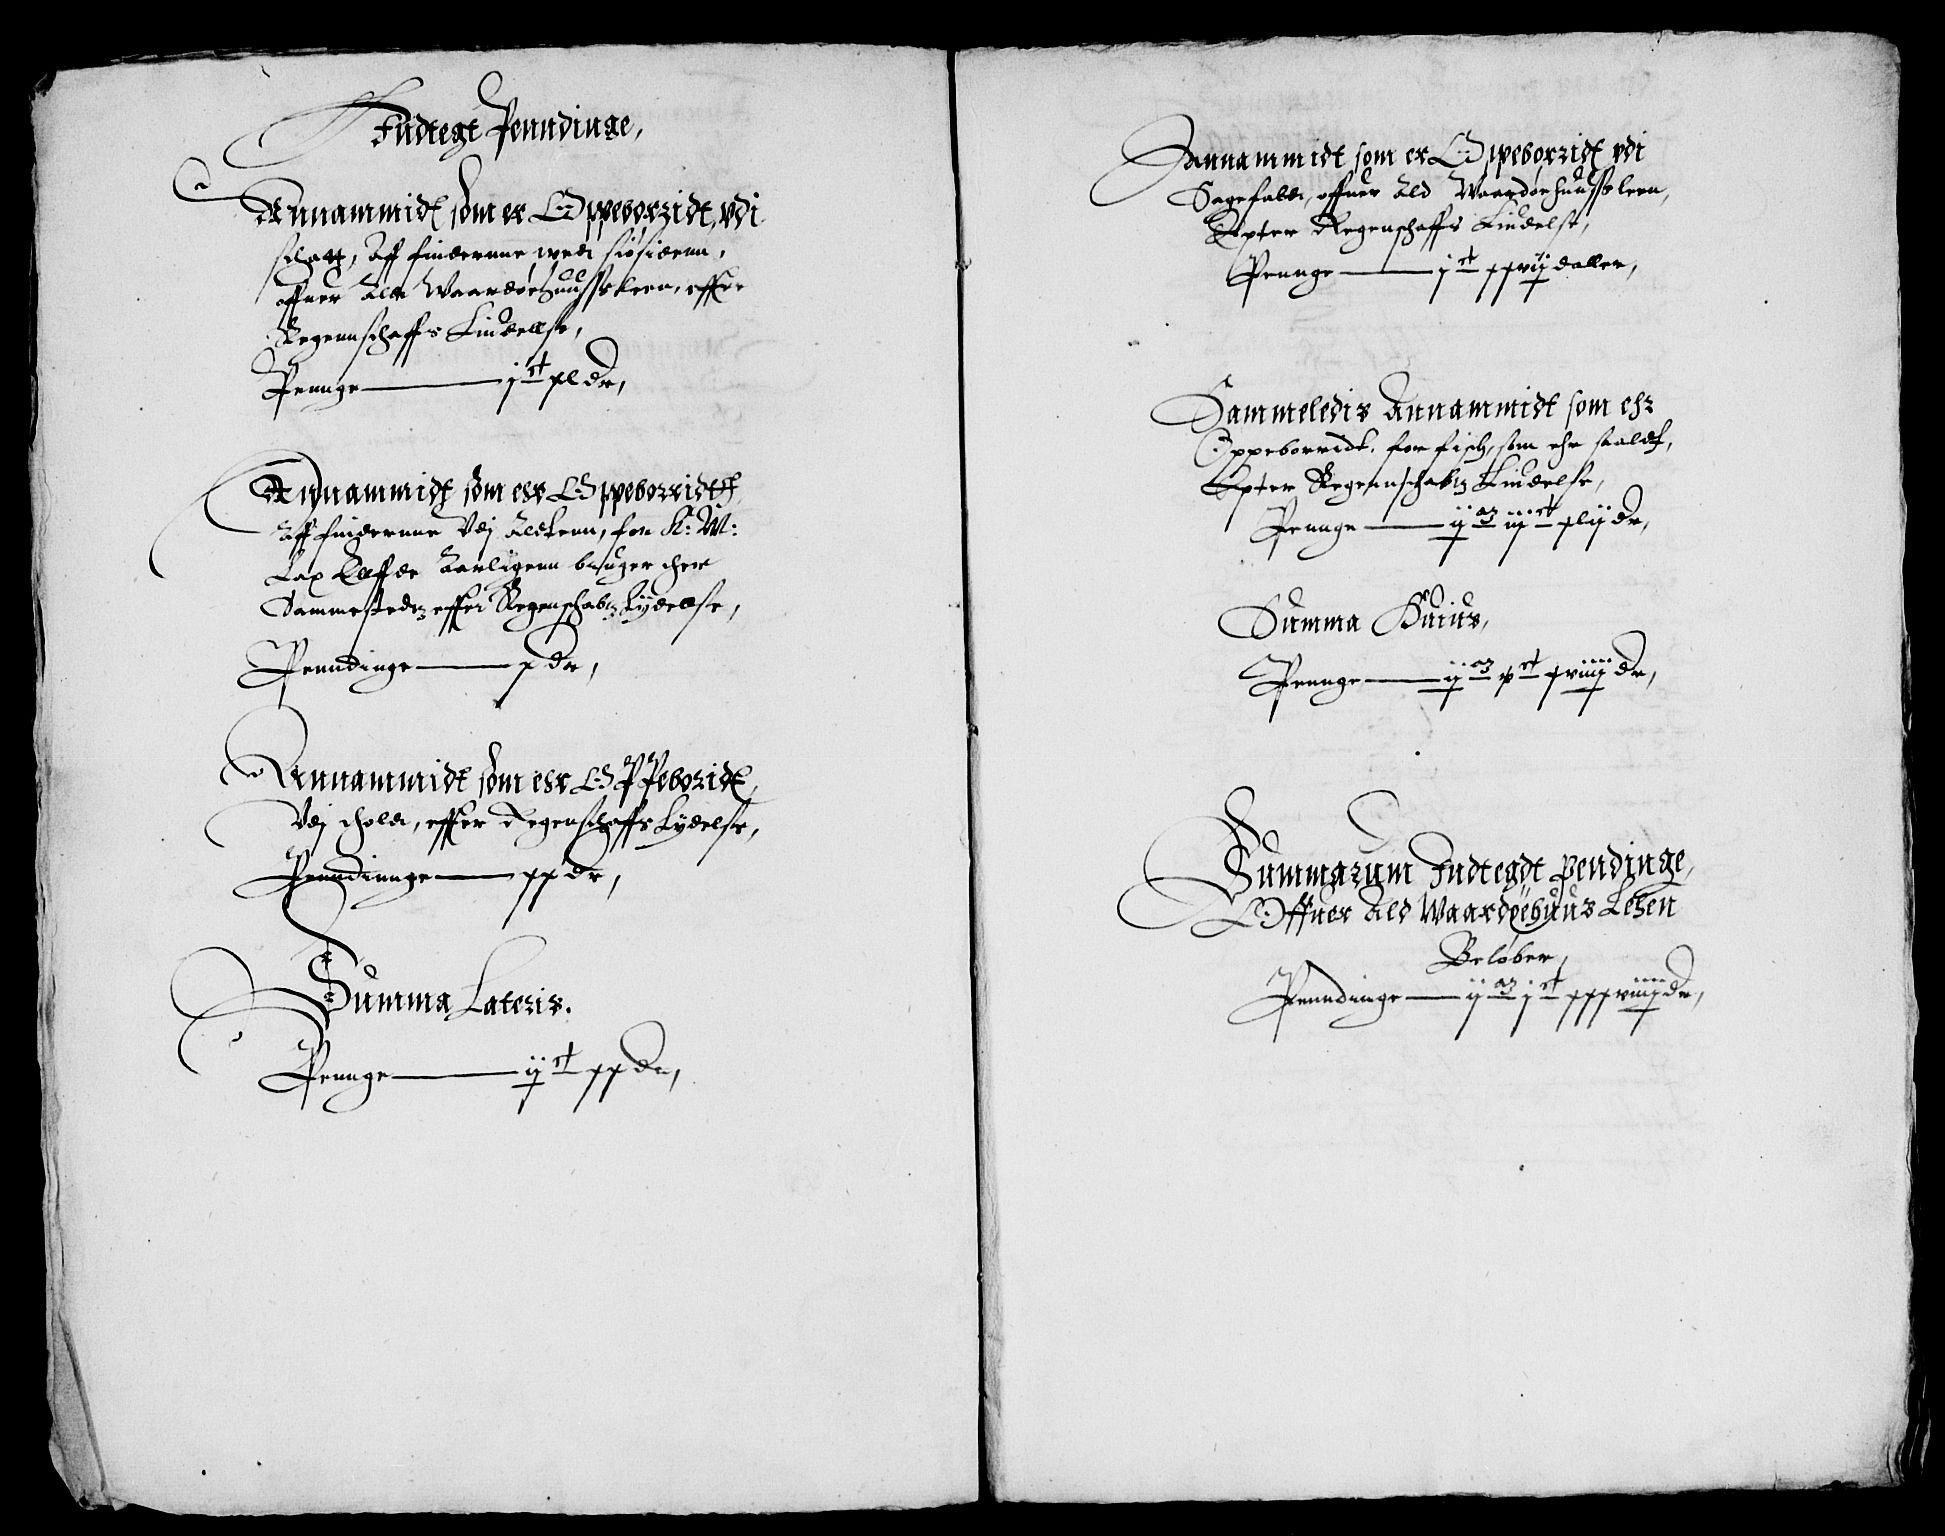 Indtegt Penndinge,
Annammidt som er Oppeborridt, vdi
schatt, Aff findernne wed siøsidenn,
offuer Ald Waardøehuussleen, effter
Regennschaffs Liudellse,
Pennge j ct xl dr,
Annammidt som ehr Oppeborridtt
Aff finderne Vdj Altenn, for K: M:
Lax Ellffde Aarligenn bruger ther
Sammestedz effter Regenschabz Lydellse,
Penndinge x dr,
Annammidt som ehr Oppeboridt,
Vdj tholde, effter Regenschaffs Lydelse,
Penndinnge xx dr,
Summa Lateris.
Pennge ij ct xx dr,
Annammidt som er Oppeborridt vdi
Sagefald, offuer Ald Waardøehuussleen,
Epter Regenschaffs Liudelse,
Pennge j ct xxvij daller,
Sammeledis Annammidt som ehr
Oppeborridt, for fisch, som ehr saaldt,
Epter Regennschabz Liudelse,
Pennge ij M iij ct xlij dr,
Summa Huius,
Pennge ij M x ct xviiij dr,
Summarum Indtegdt pendinge,
Offuer Ald Waardøehuus Lehen
Beløber,
Penndinge ij M j ct xxxviiij dr,